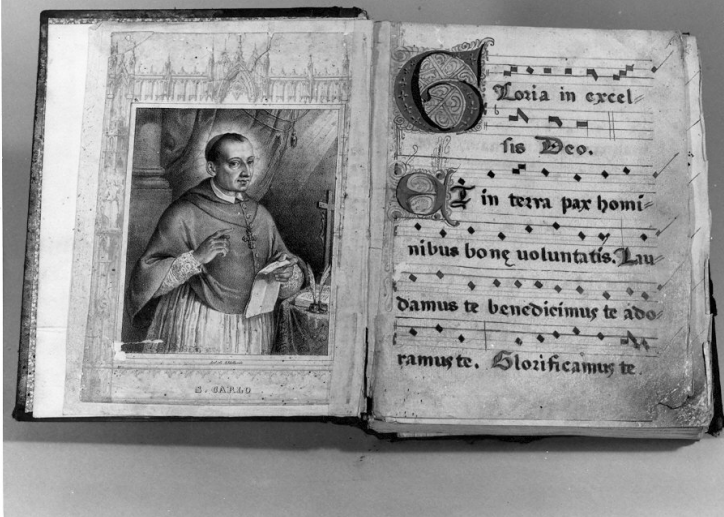 S. CARLO
Gloria in excel=
sis Deo.
Et in terra pax homi=
nibus bonę uoluntatis. Lau=
damus te benedicimus te ado=
ramus te. Glorificamus te